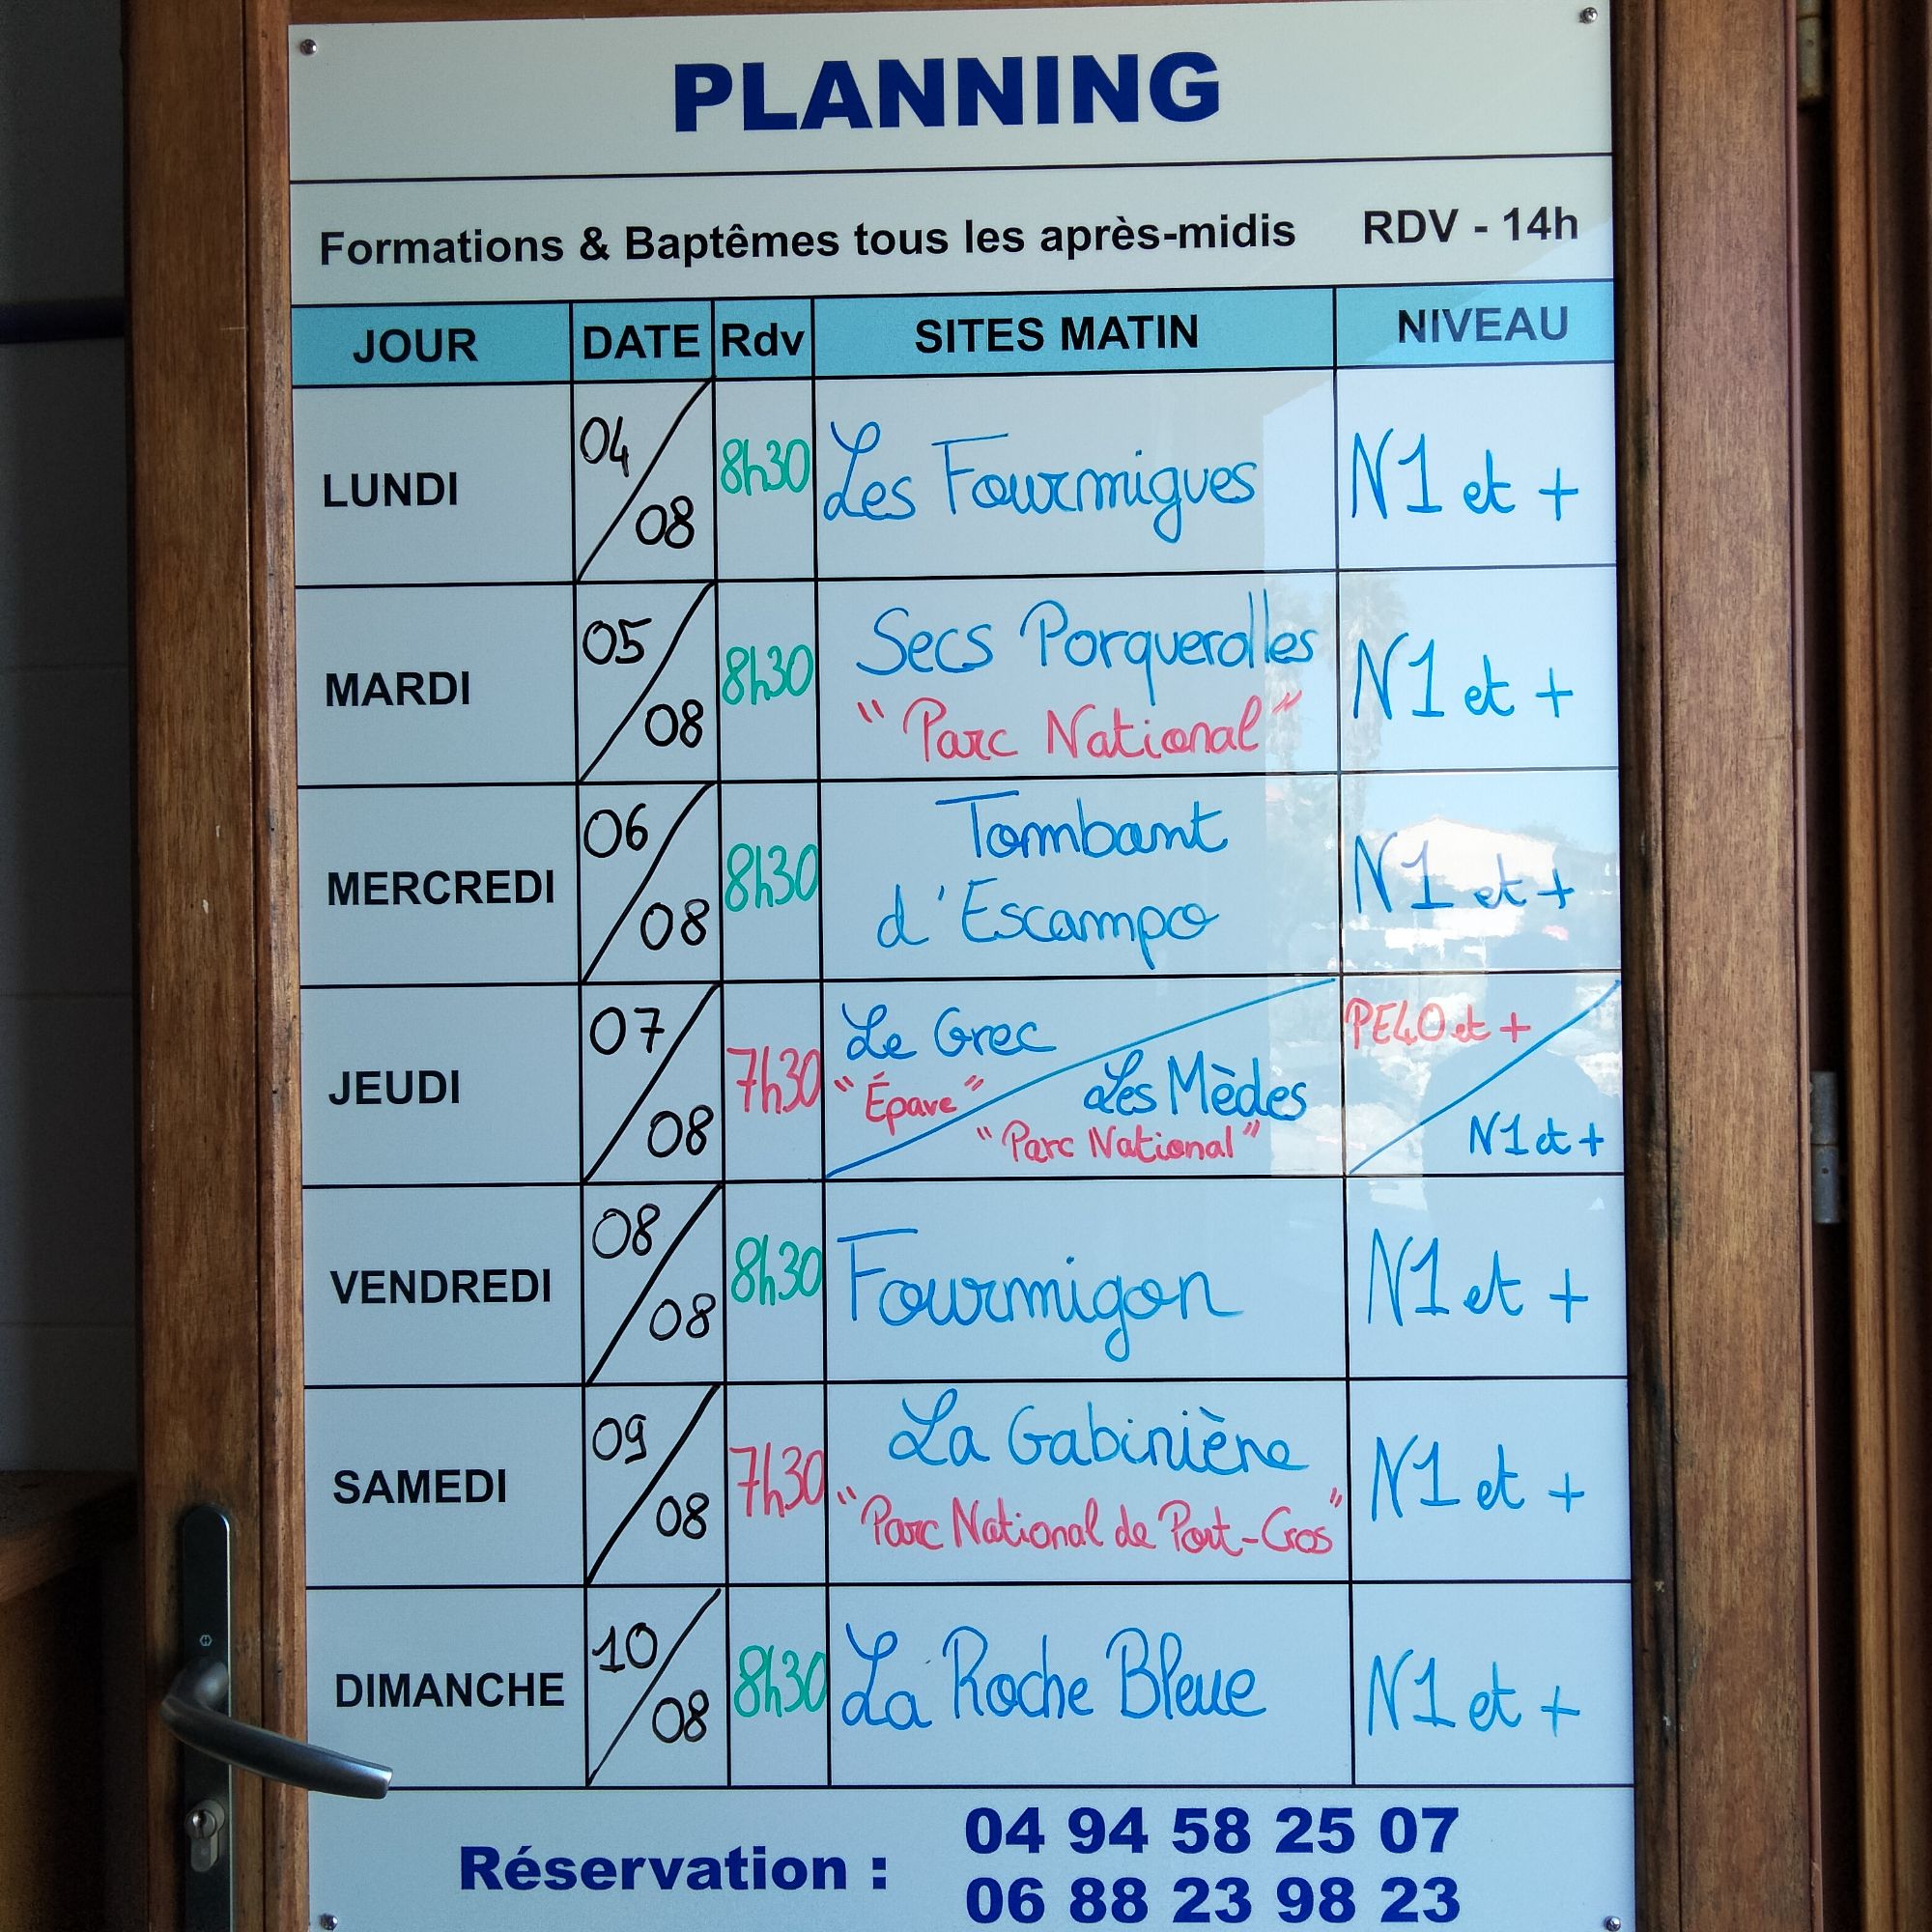 PLANNING
Formations & Baptêmes tous les après-midis RDV - 14h
JOUR DATE Rdv SITES MATIN NIVEAU
LUNDI 04/08 8h30 Les Fourmigues N1 et +
MARDI 05/08 8h30 Secs Porquerolles N1 et +
"Parc National"
MERCREDI 06/08 8h30 Tombant N1 et +
d'Escampo
JEUDI 07/08 7h30 Le Grec / Les Mèdes PE40 et + / N1 et +
"Épave" "Parc National"
VENDREDI 08/08 8h30 Fourmigon N1 et +
SAMEDI 09/08 7h30 La Gabinière N1 et +
"Parc National de Port-Cros"
DIMANCHE 10/08 8h30 La Roche Bleue N1 et +
Réservation : 04 94 58 25 07
06 88 23 98 23